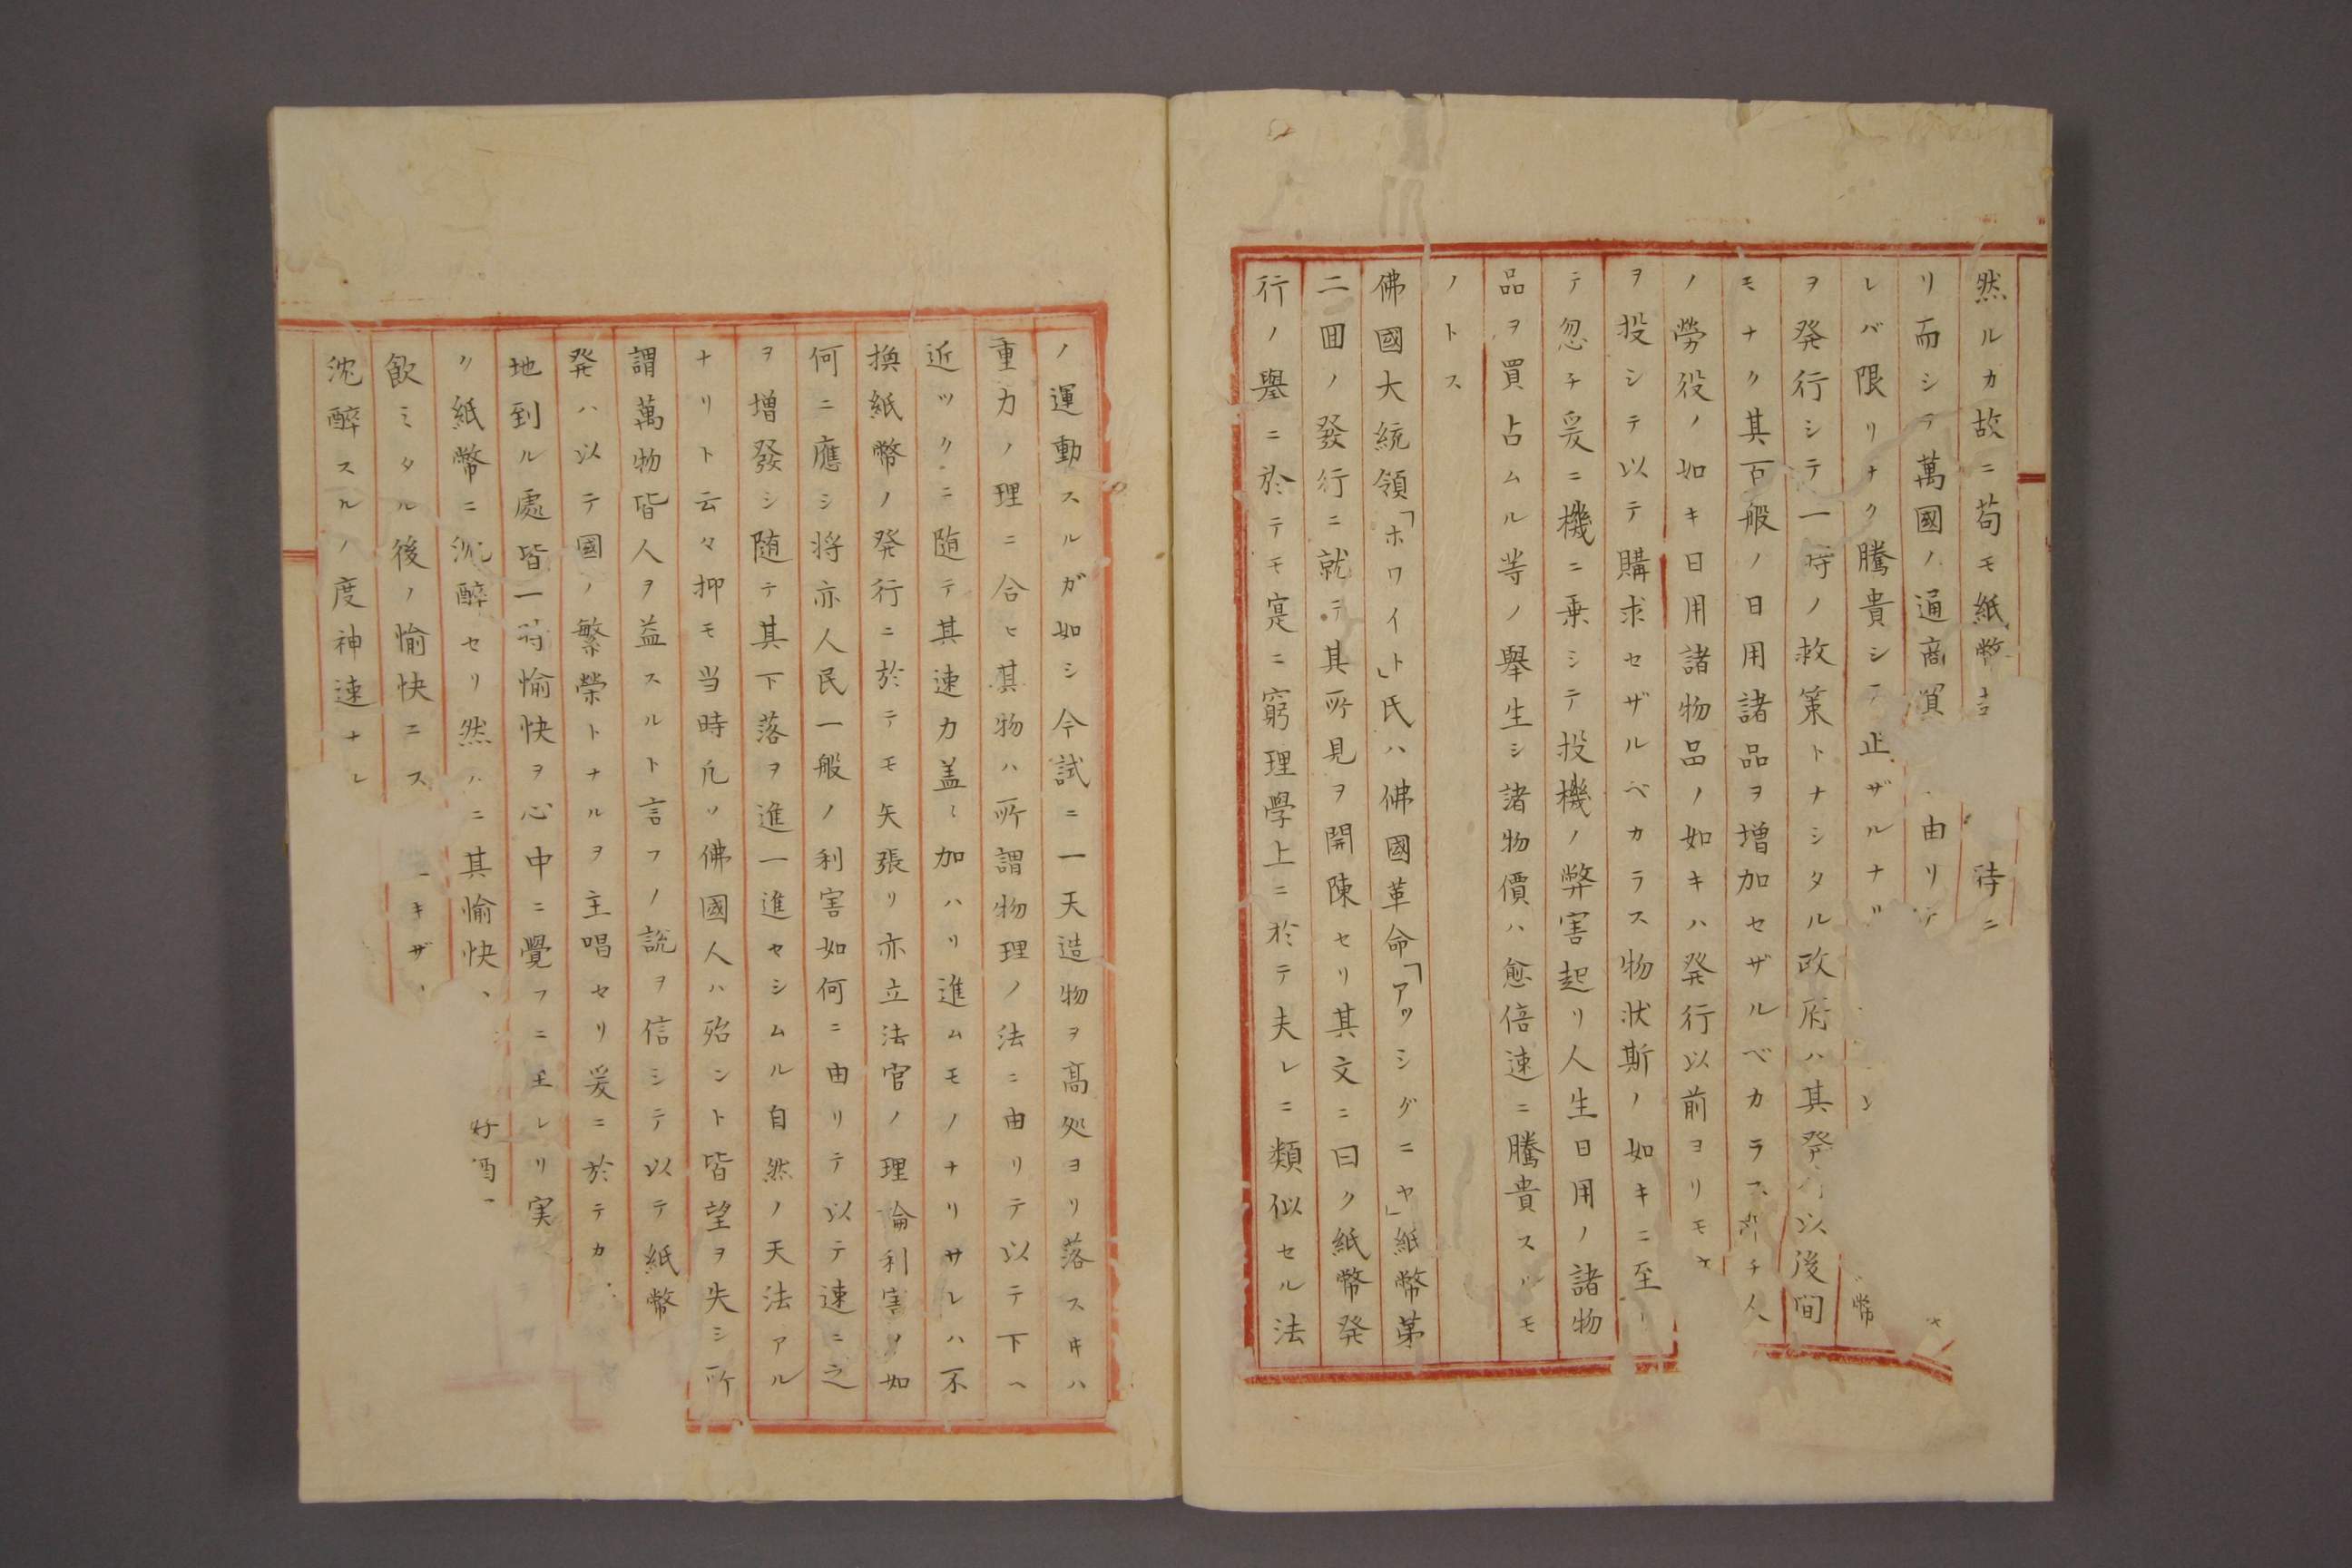 然ルカ故ニ苟モ紙幣 待ニ
リ而シテ萬國ノ通商 由リテ
レバ限リナク騰貴シテ止ザルナ 幣
ヲ発行シテ一時ノ救策トナシタル政府ハ其発 以後間
モナク其百般ノ日用諸品ヲ増加セザルベカラ チ人
ノ勞役ノ如キ日用諸物品ノ如キハ発行以前ヨリモ
ヲ投シテ以テ購求セザルベカラス物状斯ノ如キニ至
テ忽チ爰ニ機ニ乗シテ投機ノ弊害起リ人生日用ノ諸物
品ヲ買占ムル等ノ擧生シ諸物價ハ愈倍速ニ騰貴スルモ
ノトス
佛國大統領「ホワイト」氏ハ佛國革命「アッシグニヤ」紙幣第
二回ノ發行ニ就テ其所見ヲ開陳セリ其文ニ曰ク紙幣発
行ノ擧ニ於テモ寔ニ窮理學上ニ於テ夫レニ類似セル法
ノ運動スルガ如シ今試ニ一天造物ヲ高処ヨリ落スキハ
重力ノ理ニ合ヒ其物ハ所謂物理ノ法ニ由リテ以テ下ヘ
近ツクニ随テ其速力盖〻加ハリ進ムモノナリサレハ不
換紙幣ノ発行ニ於テモ矢張リ亦立法官ノ理論利害ノ如
何ニ應シ将亦人民一般ノ利害如何ニ由リテ以テ速ニ之
ヲ増發シ随テ其下落ヲ進一進セシムル自然ノ天法アル
ナリト云々抑モ当時凡ソ佛國人ハ殆ント皆望ヲ失シ所
謂萬物皆人ヲ益スルト言フノ説ヲ信シテ以テ紙幣
発ハ以テ國ノ繁榮トナルヲ主唱セリ爰ニ於テカ
地到ル處皆一時愉快ヲ心中ニ覺フニ至レリ実
ク紙幣ニ沈醉セリ然 ニ其愉快 好酒
飲ミタル後ノ愉快ニス キザ
沈醉スルノ度神速ナレ